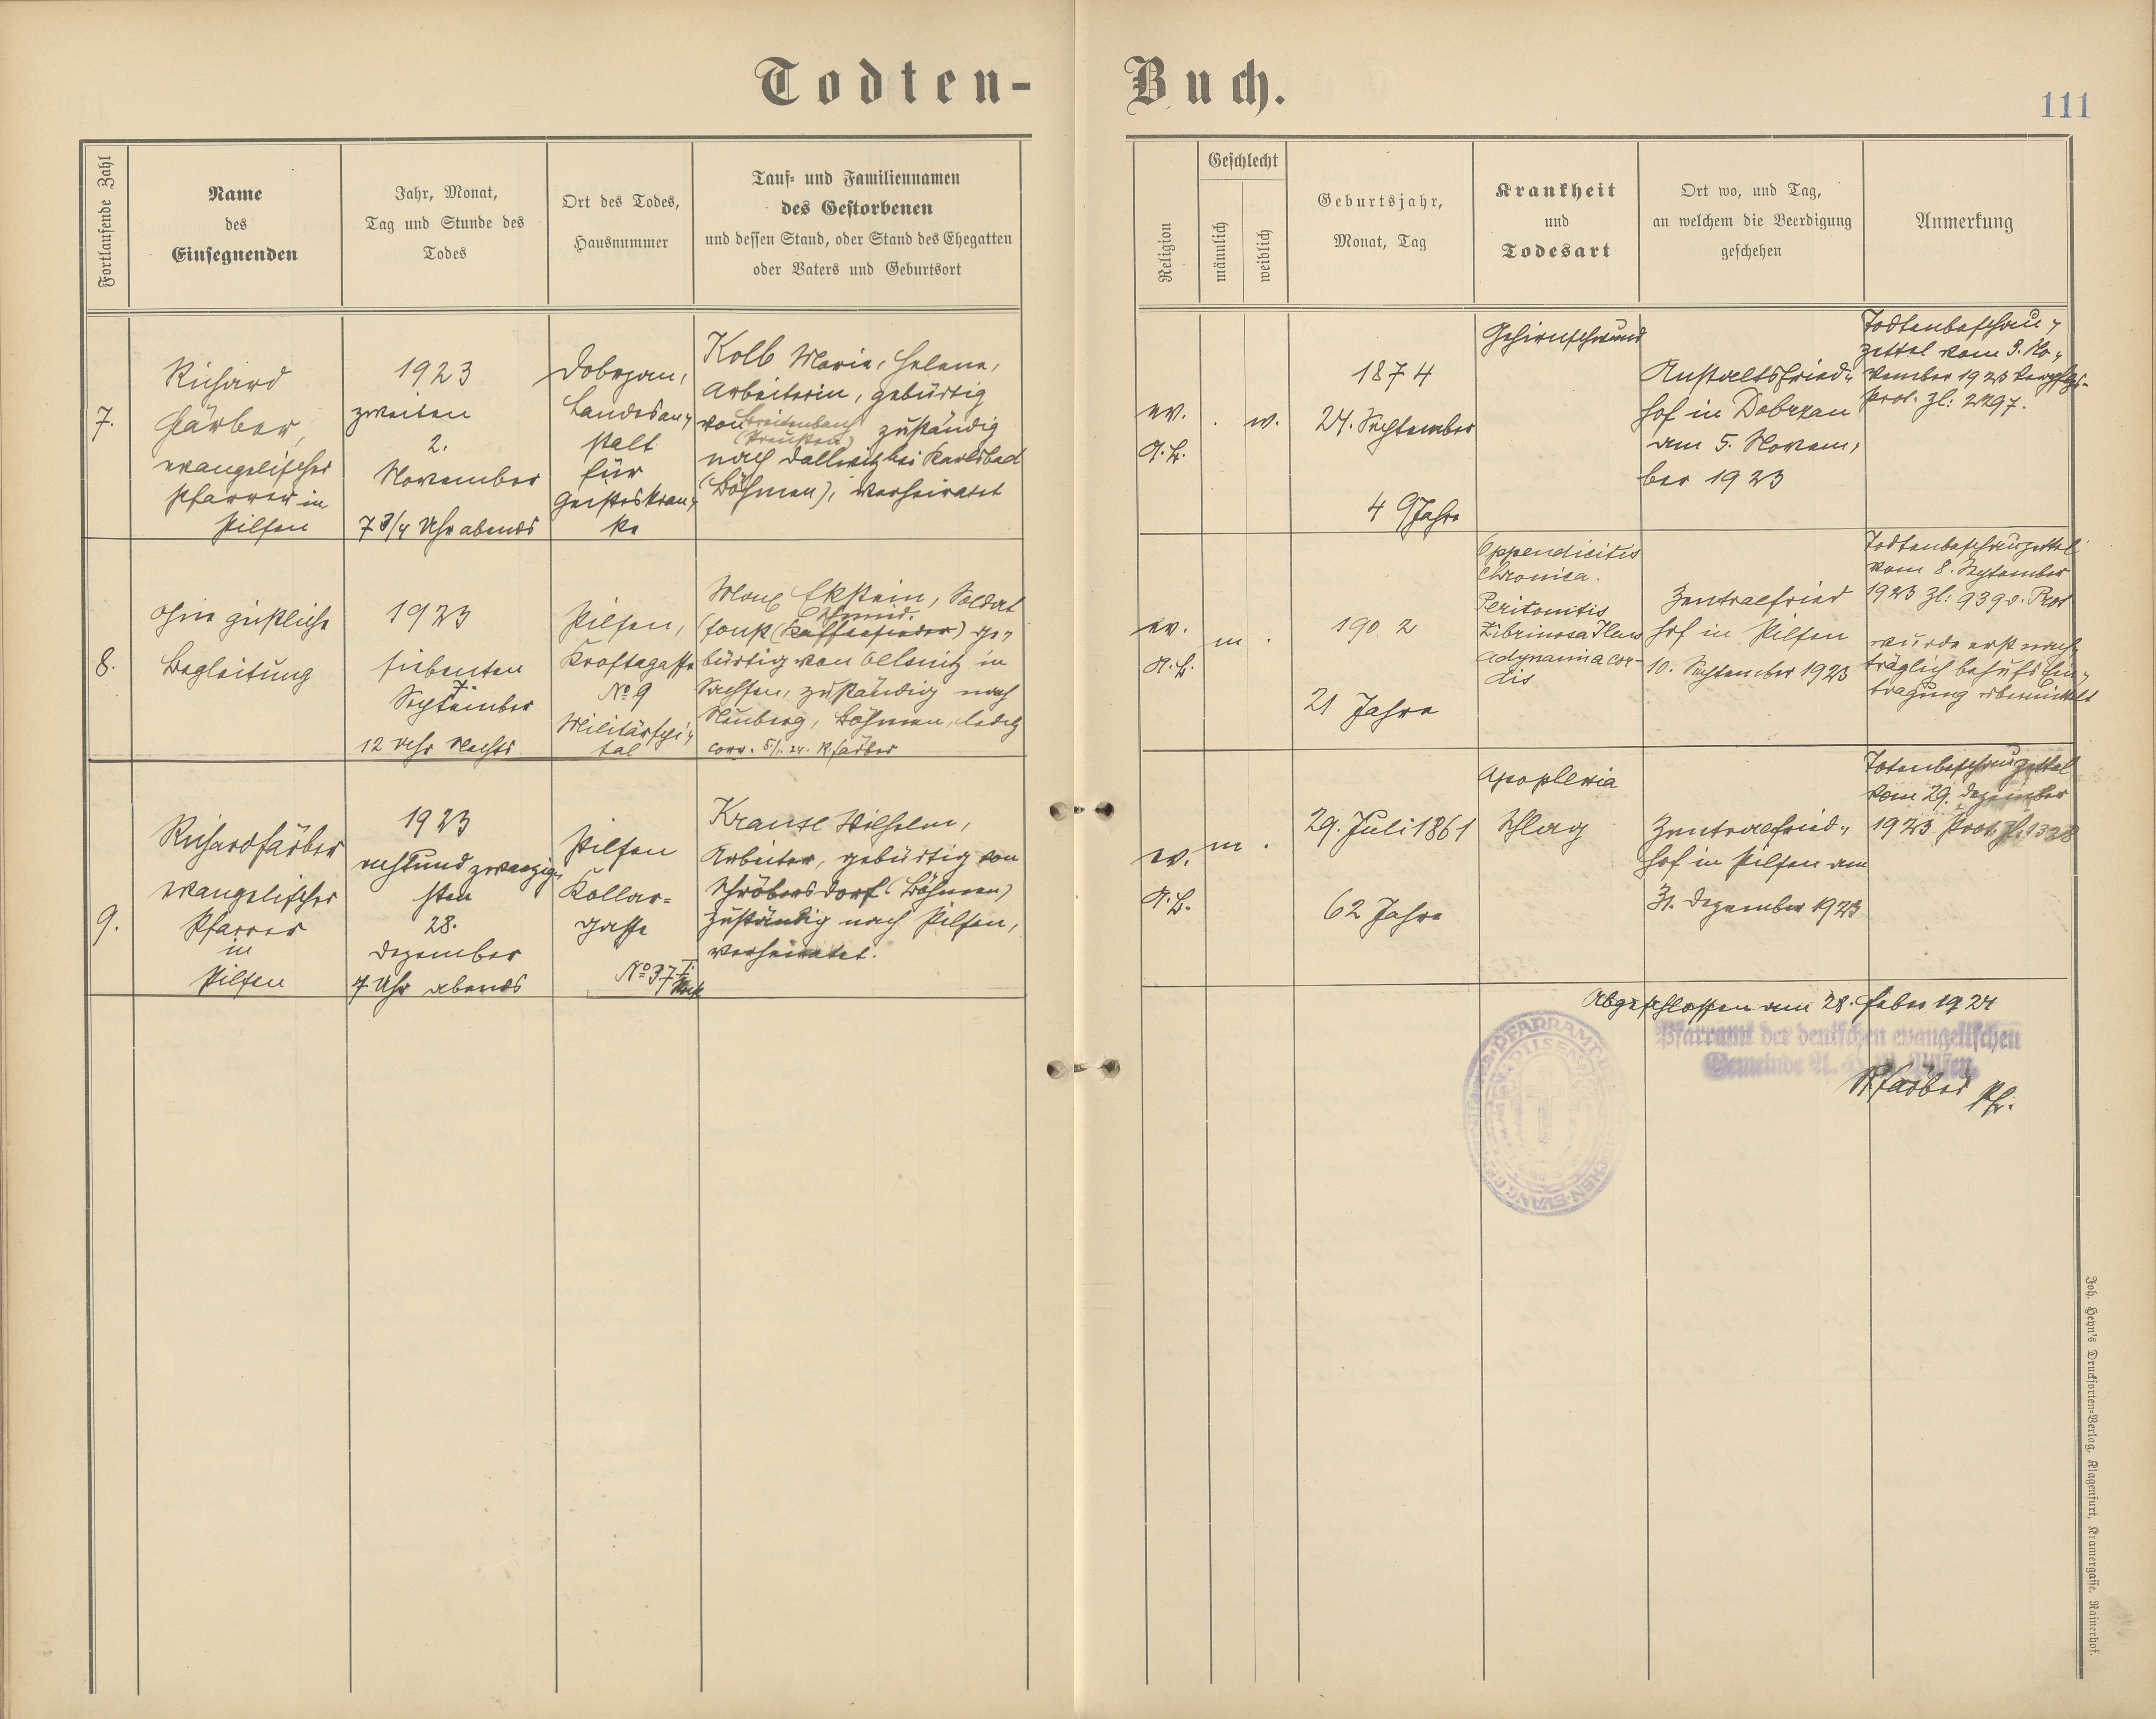 Todten-
Buch.
111
Fortlaufende Zahl
Name
des
Einsegnenden
Jahr, Monat,
Tag und Stunde des
Todes
Ort des Todes,
Hausnummer
Tauf- und Familiennamen
des Gestorbenen
und dessen Stand, oder Stand des Ehegatten
oder Vaters und Geburtsort
Religion
Geschlecht
männlich
weiblich
Geburtsjahr,
Monat, Tag
Krankheit
und
Todesart
Ort wo, und Tag,
an welchem die Beerdigung
geschehen
Anmerkung
7.
Richard
Färber,
evangelischer
Pfarrer in
Pilsen
1923
zweiten
2.
November
7 3/4 Uhr abends
Dobrzan,
Landesan„
stalt
für
Geisteskran„
ke
Kolb Marie, Helene,
Arbeiterin, gebürtig
von Breitenbach zuständig
(Preußen)
nach Dallwitz bei Karlsbad
(Böhmen), verheiratet
ev.
A.B.
w.
1874
24. September
49 Jahre
Gehirnschwund
Anstaltsfried„
hof in Dobrzan
am 5. Novem„
ber 1923
Todtenbeschau„
zettel vom 3. No„
vember 1923
Prot. Zl: 2297.
8.
Ohne geistliche
Begleitung
1923
siebenten
7.
September
12 Uhr Nachts
Pilsen,
Kroftagasse
No 9
Militärspi„
tal
Ekstein, Soldat
(sonst ge„
bürtig von Oelsnitz in
Sachsen, zuständig nach
Neuberg, Böhmen, ledig
corr. 5/1. 24. R. Färber
ev.
A.B.
m.
1902
21 Jahre
Appendicitis
chronica.
Peritonitis
Fibrinosa Ileus
adynamia cor-
dis
Zentralfried
hof in Pilsen
10. September 1923
Todtenbeschauzettel
vom 8. September
1923 Zl: 939 v. Prot
wurde erst nach„
träglich behufs Ein„
tragung übermittelt
9.
Richard Färber
evangelischer
Pfarrer
in
Pilsen
1923
achtundzwanzig„
sten
28.
Dezember
7 Uhr abends
Pilsen
Kollar=
gasse
No 37 I. Stock
Krause Wilhelm,
Arbeiter, gebürtig von
Schröbersdorf (Böhmen)
zuständig nach Pilsen,
verheiratet.
ev.
A.B.
m.
29. Juli 1861
62 Jahre
Apoplexia
Schlag
Zentralfried„
hof in Pilsen am
31. Dezember 1923
Totenbeschauzettel
vom 29. Dezember
1923 Prot. Zl. 1328
Abgeschlossen am 28. Feber 1924
Pfarramt der deutschen evangelischen
Gemeinde A. B. Pilsen.
R Färber Pfr.
Joh. Heyn's Drucksorten-Verlag, Klagenfurt, Kramergasse, Rainerhof.